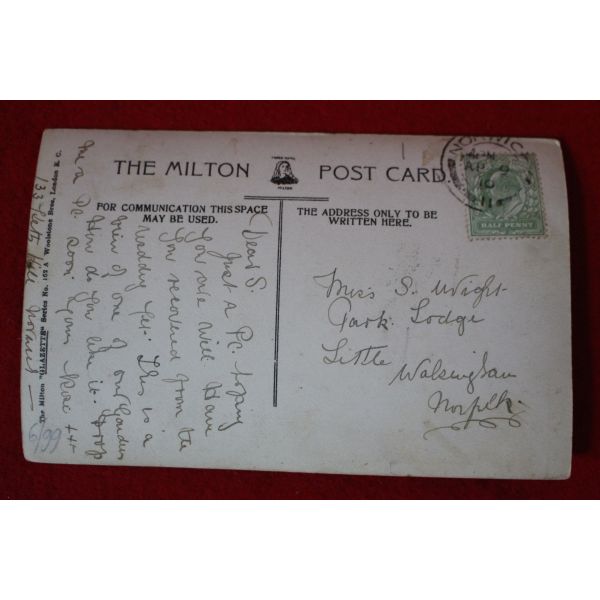 THE MILTON POST CARD
MILTON
FOR COMMUNICATION THIS SPACE
MAY BE USED.
THE ADDRESS ONLY TO BE
WRITTEN HERE.
NORWICH
HALF PENNY
Dear S.
Just a Pc. hoping
you are well Have
you recovered from the
wedding yet. This is a
view of one of our Gardens
How do you like it. Drop
me a Pc. soon Yours Rose
133
Miss S. Wright
Park Lodge
Little
Walsingham
Norfolk.
The Milton "GLAZETTE" Series No. 162 A Woolstone Bros., London E.C.